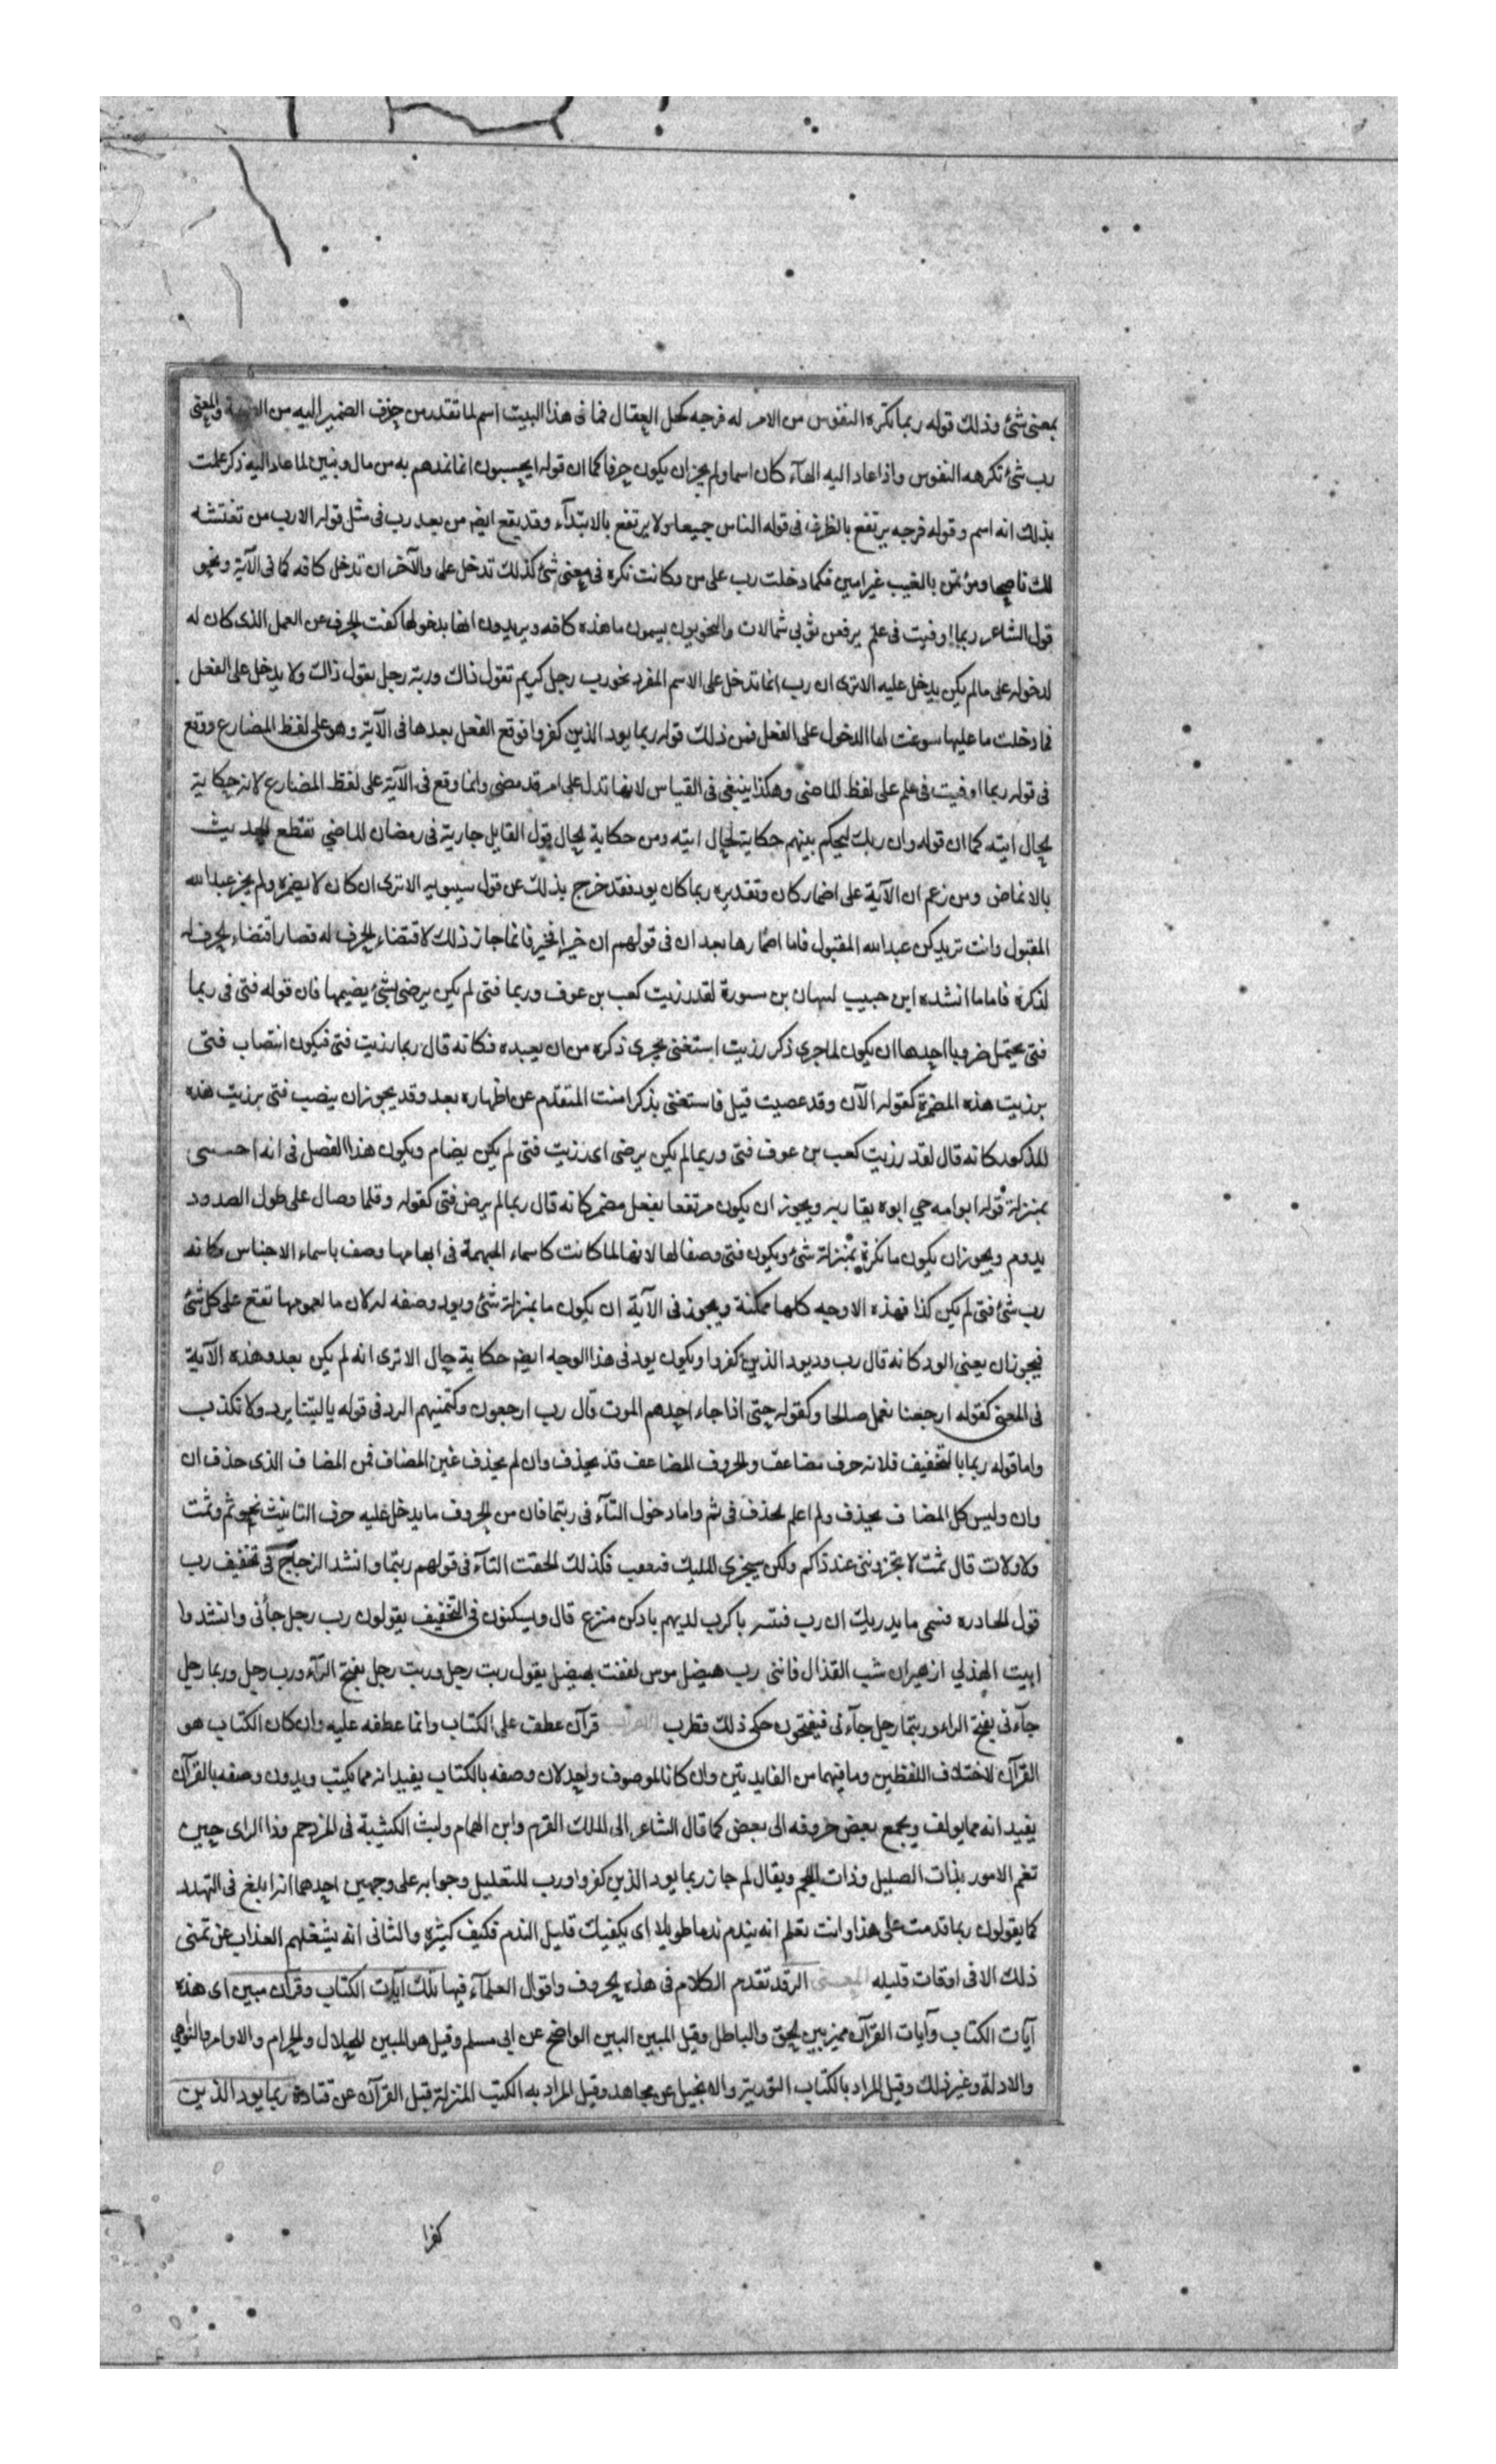 بمعنى شئ وذلك قوله ربما تكره النفوس من الامر له فرجه كحل العقال فما فى هذا البيت اسم لما تقدر من حذف الضمير اليه من والمعنى
رب شئ تكرهه النفوس واذا عاد اليه الهآء كان اسما ولم يجز ان يكون حرفا كما ان قوله ايحسبون انما نمدهم به من مال وبنين لما عاد اليه ذكر علمت
بذلك انه اسم وقوله فرجه يرتفع بالظرف فى قوله الناس جميعا ولا يرتفع بالابتدآء وقد يقع ايضا من بعد رب فى مثل قوله الا رب من تغتشه
لك ناصحا ومؤتمن بالغيب غير امين فكما دخلت رب على من وكانت نكره فى معنى شئ كذلك تدخل على والآخر ان تدخل كافه كما فى الآية ونحو
قول الشاعر ربما اوفيت فى علم يرفعن ثوبى شمالات والنحويون يسمون ما هذه كافه ويريدون انها بدخولها كفت الحرف عن العمل الذى كان له
لدخوله على ما لم يكن يدخل عليه الاترى ان رب انما تدخل على الاسم المفرد نحو رب رجل كريم تقول ذاك وربه رجل يقول ذاك ولا يدخل على الفعل
فما دخلت ما عليها سوغت لها الدخول على الفعل فمن ذلك قوله ربما يود الذين كفروا فوقع الفعل بعدها فى الآية وهو على لفظ المضارع ووقع
فى قوله ربما اوفيت فى علم على لفظ الماضى وهكذا ينبغى فى القياس لانها تدل على امر قد مضى وانما وقع فى الآية على لفظ المضارع لانه حكاية
لحال اتيه كما ان قوله وان ربك ليحكم بينهم حكاية لحال اتيه ومن حكاية لحال قول القايل جارية فى رمضان الماضي تقطع الحديث
بالانماض ومن زعم ان الآية على اضمار كان وتقديره ربما كان يود فقد خرج بذلك عن قول سيبويه الاترى ان كان لا يضمره ولم يجز عبد الله
المقبول وانت تريد كن عبد الله المقبول فاما اضمارها بعد ان فى قولهم ان خيرا فخير فانما جاز ذلك لاقتضاء الحرف له فصار اقتضاء الحرف له
لذكره فاما ما انشده ابن حبيب لنبهان بن سورة لقد رزيت كعب بن عوف وربما فتى لم يكن يرضى بشئ يضيمها فان قوله فتى فى ربما
فتى يحتمل ضروبا احدها ان يكون لما جرى ذكر رزيت استغنى بجرى ذكره من ان يعيده فكانه قال ربما رزيت فتى فيكون انتصاب فتى
برزيت هذه المضمرة كقوله الآن وقد عصيت قبل فاستغنى بذكر امنت المتقدم عن اظهاره بعد وقد يجوز ان ينصب فتى برزيت هذه
المذكوره كانه قال لقد رزيت كعب بن عوف فتى وربما لم يكن يرضى اى رزيت فتى لم يكن يضام ويكون هذا الفصل فى انه احسسى
بمنزلة قوله ابو امه حي ابوه يقاربه ويجوز ان يكون مرتفعا بفعل مضمر كانه قال ربما لم يرض فتى كقوله وقلما وصال على طول الصدود
يدوم ويجوز ان يكون ما نكرة بمنزلة شئ ويكون فتى وصفا لها لانها لما كانت كاسماء المبهمة فى ابهامها وصف باسماء الاجناس كانه
رب شئ فتى لم يكن كذا فهذه الاوجه كلها ممكنة ويجوز فى الآية ان يكون ما بمنزلة شئ ويود وصفه له لان ما لعمومها تقع على كل شئ
فيجوز ان يعنى الود كانه قال رب ود يود الذين كفروا ويكون يود فى هذا الوجه ايضا حكاية حال الاترى انه لم يكن بعد وهذه الآية
فى المعنى كقوله ارجعنا نعمل صالحا وكقوله حتى اذا جاء احدهم الموت قال رب ارجعون وكتمنيهم الرد فى قوله يا ليتنا نرد ولا نكذب
واما قوله ربما بالتخفيف فلانه حرف مضاعف والحروف المضاعف قد يحذف وان لم يحذف غير المضاف فمن المضاف الذى حذف ان
وان وليس كل المضاف يحذف ولم اعلم لحذف فى ثم واما دخول التآء فى ربتما فان من الحروف ما يدخل عليه حرف التانيث نحو ثم وثمت
ولا ولات قال ثمت لا تجزوننى عند ذاكم ولكن سيجزى المليك فيعقب فكذلك لحقت التآء فى قولهم ربتما وانشد الزجاج فى تخفيف رب
قول الحادره فسمى ما يدريك ان رب فتية باكرت لذيهم بادكن مترع قال ويسكنون فى التخفيف يقولون رب رجل جآنى وانشد وا
ابيت الهذلي ازهير ان شب القذال فاننى رب هيضل مرس لففت بهيضل يقول ربت رجل وربت رجل بفتح الرآء ورب رجل وربما رجل
جآءنى بفتح الراء وربتما رجل جآءنى فيفتحون حكى ذلك قطرب قرآن عطف على الكتاب وانما عطفه عليه وان كان الكتاب هو
القرآن لاختلاف اللفظين وما فيهما من الفايدتين وان كانا لموصوف واحد لان وصفه بالكتاب يفيد انه مما يكتب ويدون وصفه بالقرآن
يفيد انه مما يولف ويجمع بعض حروفه الى بعض كما قال الشاعر الى الملك القرم وابن الهمام وليث الكتيبة فى المزدحم وذا الراى حين
تغم الامور بذات الصليل وذات اللجم ويقال لم جاز ربما يود الذين كفروا ورب للتقليل وجوابه على وجهين احدهما انه ابلغ فى التهدد
كما يقولون ربما ندمت على هذا وانت تعلم انه يندم ندما طويلا اى يكفيك قليل الندم فكيف كثيره والثانى انه يشغلهم العذاب عن تمنى
ذلك الا فى اوقات قليله المعنى الر قد تقدم الكلام فى هذه الحروف واقوال العلمآء فيها تلك آيات الكتاب وقرآن مبين اى هذه
آيات الكتاب وآيات القرآن مميز بين الحق والباطل وقيل المبين البين الواضح عن ابى مسلم وقيل هو المبين للحلال والحرام والاوامر والنواهى
والادلة وغير ذلك وقيل المراد بالكتاب التوريه والانجيل عن مجاهد وقيل المراد به الكتب المنزلة قبل القرآن عن قتادة ربما يود الذين
كفرا